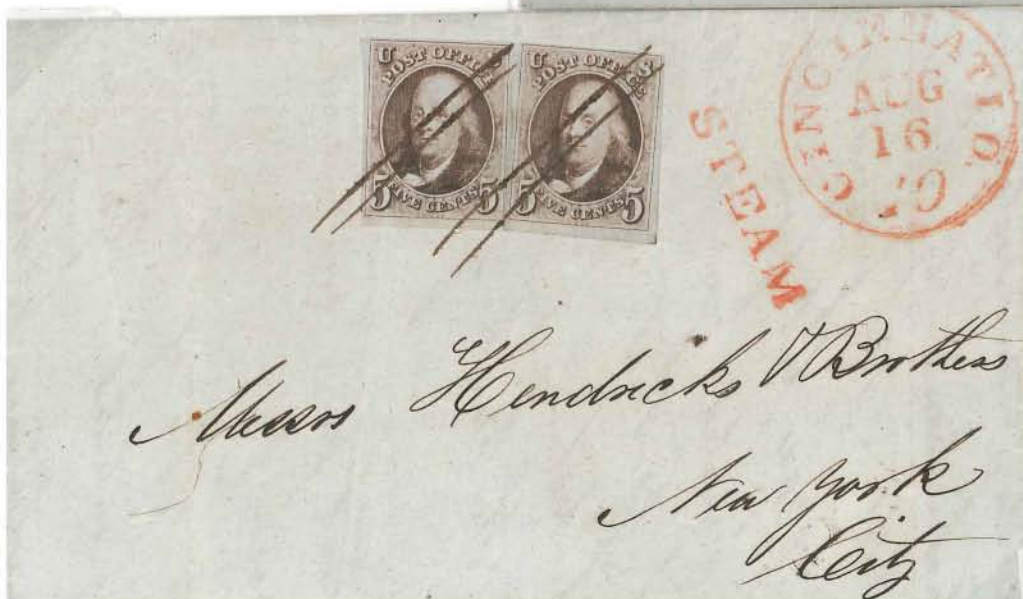 U S
POST OFFICE
5 FIVE CENTS 5
U S
POST OFFICE
5 FIVE CENTS 5
CINCINNATI O.
AUG
16
10
STEAM
Messrs Hendricks & Brothers
New York
City